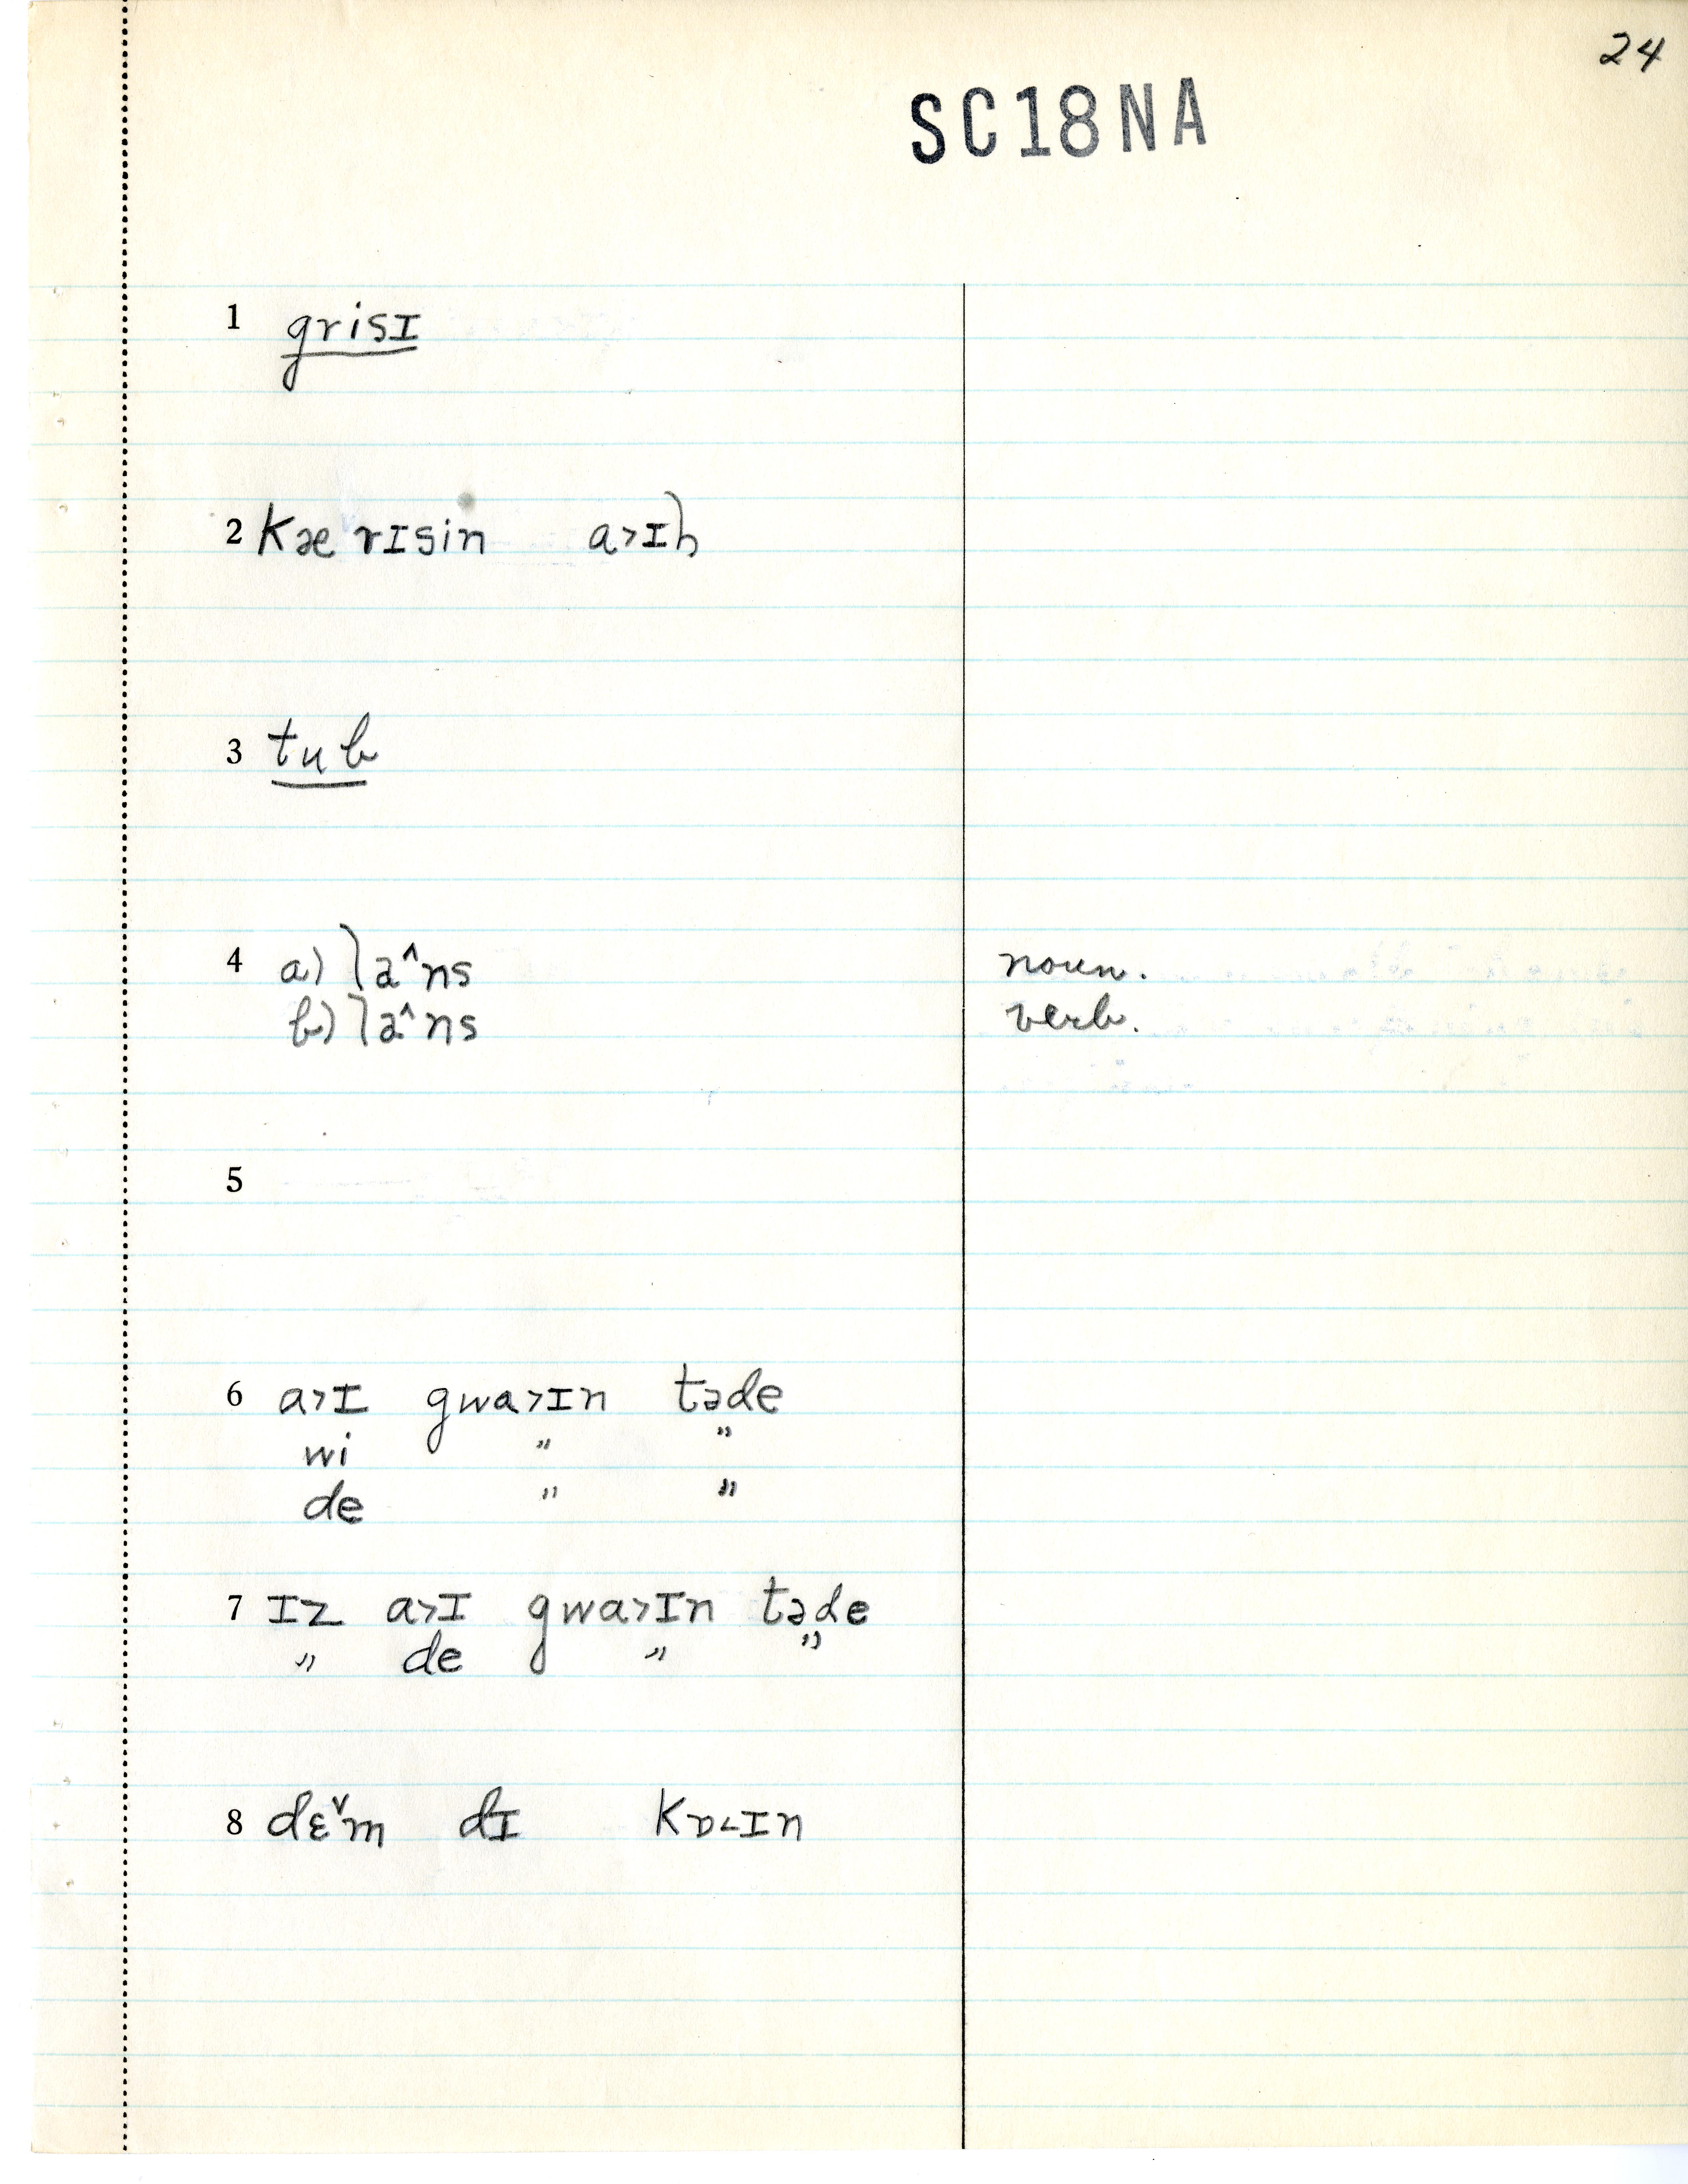 24
SC18NA
1 grisɪ
2 kæ rɪsin a˃ɪl
3 tub
4 a) la^ns noun.
b) la^ns verb.
5
6 a˃ɪ gwa˃ɪn təde
wi " "
de " "
7 ɪz a˃ɪ gwa˃ɪn təde
" de " "
8 dɛ˅m dɪ kɒ˂ɪn